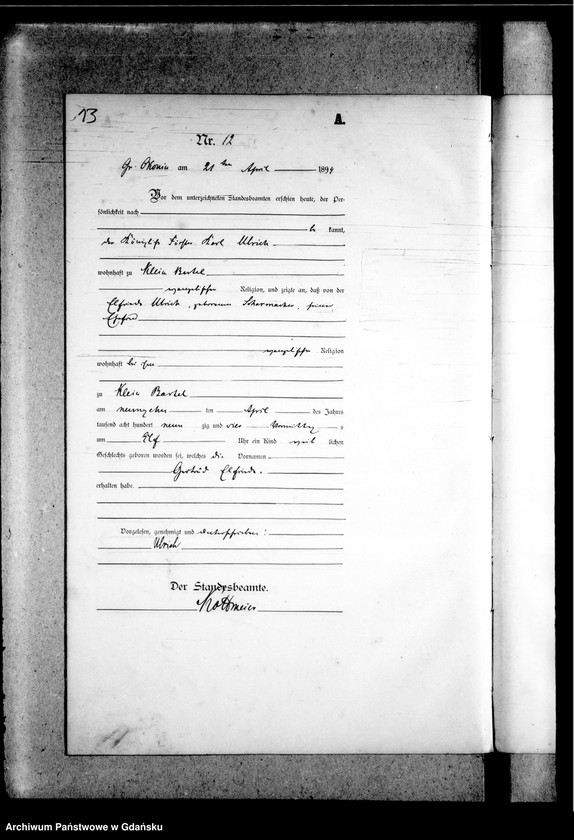 13
A.
Nr. 12
Gr. Okonin am 21ten April 1894
Vor dem unterzeichneten Standesbeamten erschien heute, der Per-
sönlichkeit nach
be kannt,
der Königliche Förster Karl Ulrich
wohnhaft zu Klein Bartel
evangelischer Religion, und zeigte an, daß von der
Elfriede Ulrich, geborenen, seiner
Ehefrau
evangelischer Religion
wohnhaft bei ihm
zu Klein Bartel
am neunzehn ten April des Jahres
tausend acht hundert neun zig und vier Vormittag s
um Elf Uhr ein Kind weib lichen
Geschlechts geboren worden sei, welches die Vornamen
Gertrud Elfriede.
erhalten habe.
Vorgelesen, genehmigt und unterschrieben:
Ulrich
Der Standesbeamte.
Archiwum Państwowe w Gdańsku